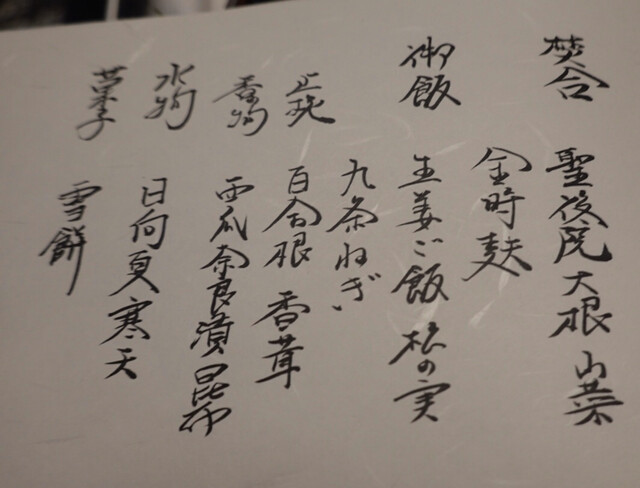 焚合 聖護院大根 山菜
金時麩
御飯 生姜ご飯 松の実
九条ねぎ
止椀 百合根 香茸
香物 西瓜奈良漬 昆布
水物 日向夏寒天
菓子 雪餅